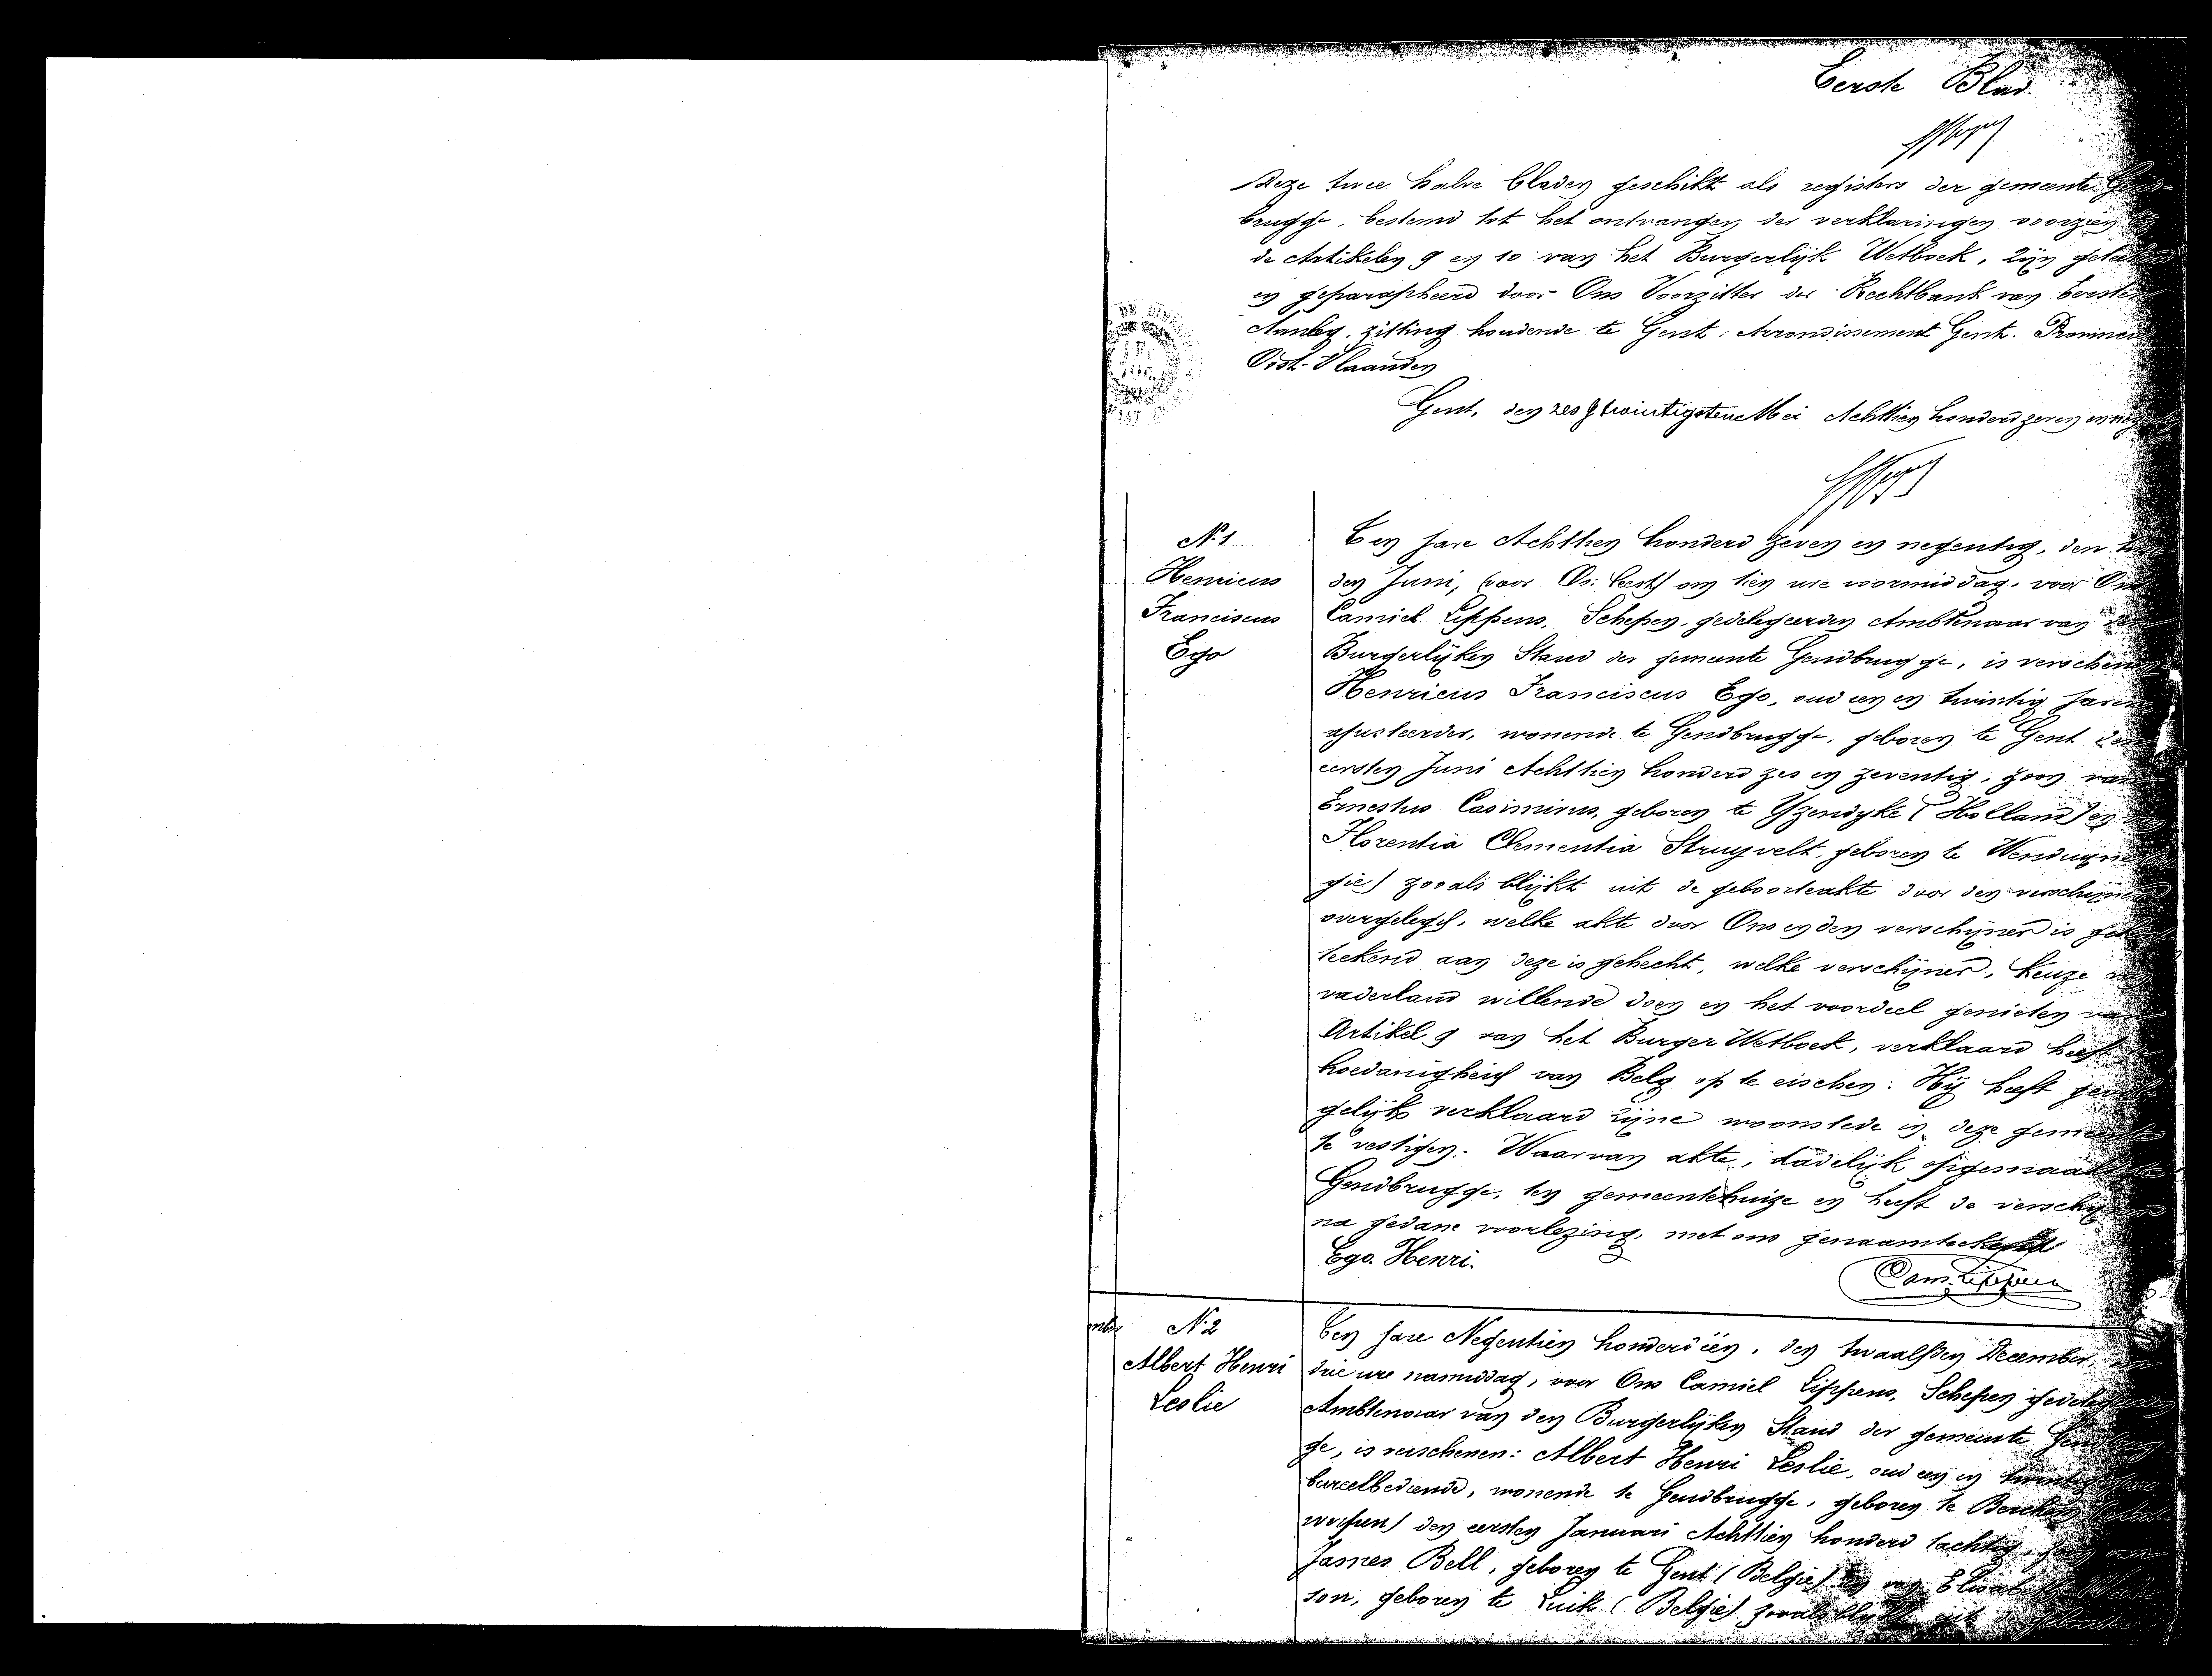 Eerste Blad.
Deze twee halve bladen geschikt als registers der gemeente Gend-
brugge, bestemd tot het ontvangen der verklaringen voorzien bij
de Artikelen 9 en 10 van het Burgerlijk Wetboek, zijn geteekend
en geparapheerd door Ons Voorzitter der Rechtbank van Eersten
Aanleg, zitting houdende te Gent, Arrondissement Gent. Provincie
Oost-Vlaanden
Gent, den zes & twintigsten Mei Achttien honderd zeven en negentig
N.1
Henricus
Franciscus
Ego
Ten jare Achttien honderd zeven en negentig, den
den Juni, om tien ure voormiddag, voor Ons
Camiel Lippens, Schepen, gedelegeerden Ambtenaar van den
Burgerlijken Stand der gemeente Gendbrugge, is verschenen
Henricus Franciscus Ego, oud een en twintig jaren
ajusteerder, wonende te Gendbrugge, geboren te Gent den
eersten Juni Achttien honderd zes en zeventig, zoon van
Ernestus Casimirus, geboren te Yzendyke (Holland) en van
Florentia Clementia Struyvelt, geboren te Wenduyne (Bel-
gie) zooals blijkt uit de geboorteakte door den verschijner
overgelegd, welke akte door Ons en den verschijner is
teekend aan deze is gehecht, welke verschijner, keuze van
vaderland willende doen en het voordeel genieten van
Artikel 9 van het Burger Wetboek, verklaard heeft de
hoedanigheid van Belg op te eischen: Hij heeft
gelijks verklaard zijne woonstede in deze gemeente
te vestigen. Waarvan akte, dadelijk opgemaakt te
Gendbrugge, ten gemeentehuize en heeft de verschijner
na gedane voorlezing, met ons genaamteekend
Ego. Henri.
Cam. Lippens
mber
N.2
Albert Henri
Leslie
Ten jare Negentien honderd één, den twaalfden December,
drie ure namiddag, voor Ons Camiel Lippens, Schepen gedelegeerden
Ambtenaar van den Burgerlijken Stand der gemeente Gendbrug
ge, is verschenen: Albert Henri Leslie, oud een en twintig jare
bureelbediende, wonende te Gendbrugge, geboren te Berchem (Ant-
werpen) den eersten Januari Achttien honderd tachtig, zoon van
James Bell, geboren te Gent (Belgie) en van Elisabeth
son, geboren te Luik (Belgie) zooals blijkt uit de geboorte